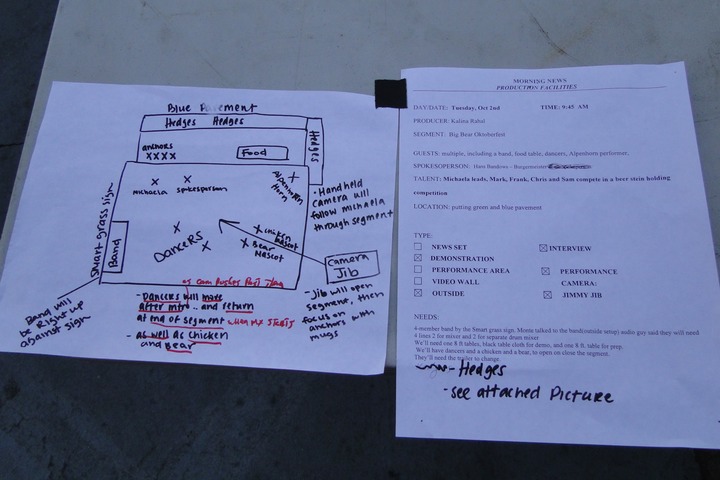 Blue Pavement
Hedges Hedges
Hedges
anchors
XXXX
Food
X X
michaela spokesperson
X
Alpenhorn
Horn
Smart grass sign
Band
X
X
DANCERS
X
X chicken
mascot
X Bear
mascot
• Handheld
camera will
follow michaela
through segment
Camera
Jib
- Jib will open
segment, then
focus on
anchors with
mugs
Band will
be Right up
against sign
as cam pushes past
- Dancers will move
after intro .. and return
at end of segment when mx starts
- as well as chicken
and Bear
MORNING NEWS
PRODUCTION FACILITIES
DAY/DATE: Tuesday, Oct 2nd TIME: 9:45 AM
PRODUCER: Kalina Rahal
SEGMENT: Big Bear Oktoberfest
GUESTS: multiple, including a band, food table, dancers, Alpenhorn performer,
SPOKESPERSON: Hans Bandows - Burgermeister
TALENT: Michaela leads, Mark, Frank, Chris and Sam compete in a beer stein holding
competition
LOCATION: putting green and blue pavement
TYPE:
NEWS SET
INTERVIEW
DEMONSTRATION
PERFORMANCE AREA
PERFORMANCE
VIDEO WALL
CAMERA:
OUTSIDE
JIMMY JIB
NEEDS:
4-member band by the Smart grass sign. Monte talked to the band(outside setup) audio guy said they will need
4 lines 2 for mixer and 2 for separate drum mixer
We'll need one 8 ft tables, black table cloth for demo, and one 8 ft. table for prep.
We'll have dancers and a chicken and a bear, to open on close the segment.
They'll need the trailer to change.
- Hedges
- see attached Picture